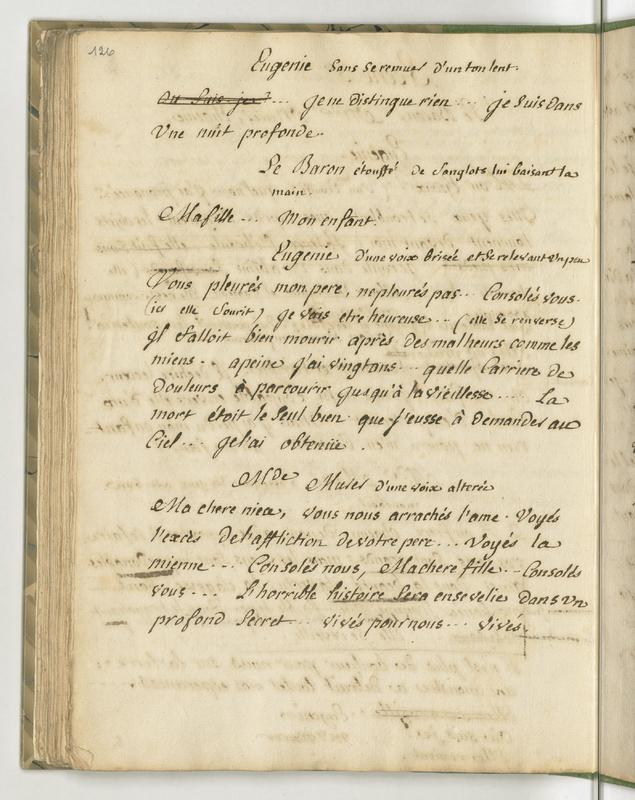 126
Eugenie sans se remuer d'un ton lent.
Ou suis-je?... je ne distingue rien... je suis dans
Une nuit profonde.
Le Baron étouffé de sanglots lui baisant la
main.
Ma fille... mon enfant.
Eugenie d'une voix brisée et se relevant un peu
Vous pleurés mon pere, ne pleurés pas... Consolés vous.
(ici elle sourit) je vais etre heureuse... (elle se renverse)
il falloit bien mourir après des malheurs comme les
miens... a peine j'ai vingt ans... quelle Carriere de
Douleurs à parcourir jusqu'à la vieillesse.... La
mort étoit le seul bien que j'eusse à demander au
Ciel... je l'ai obtenüe.
Mde Murer d'une voix alterée
Ma chere niece, vous nous arrachés l'ame. Voyés
l'excès de l'affliction de votre pere... Voyés la
mienne... Consolés nous, Ma chere fille... Consolés
vous... L'horrible histoire sera ensevelie dans un
profond secret... vivés pour nous... vivés